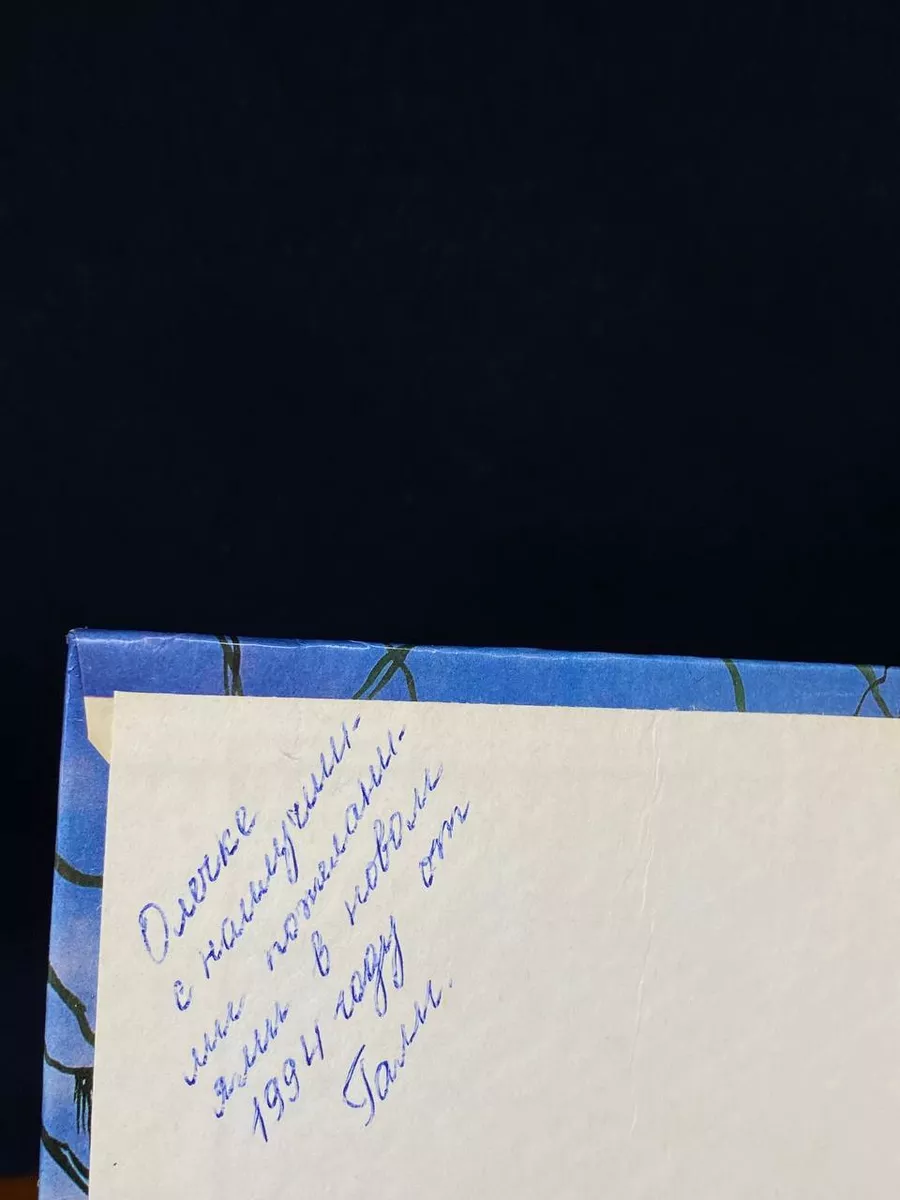 Олечке
с наилучши-
ми пожелани-
ями в новом
1994 году от
Гали.